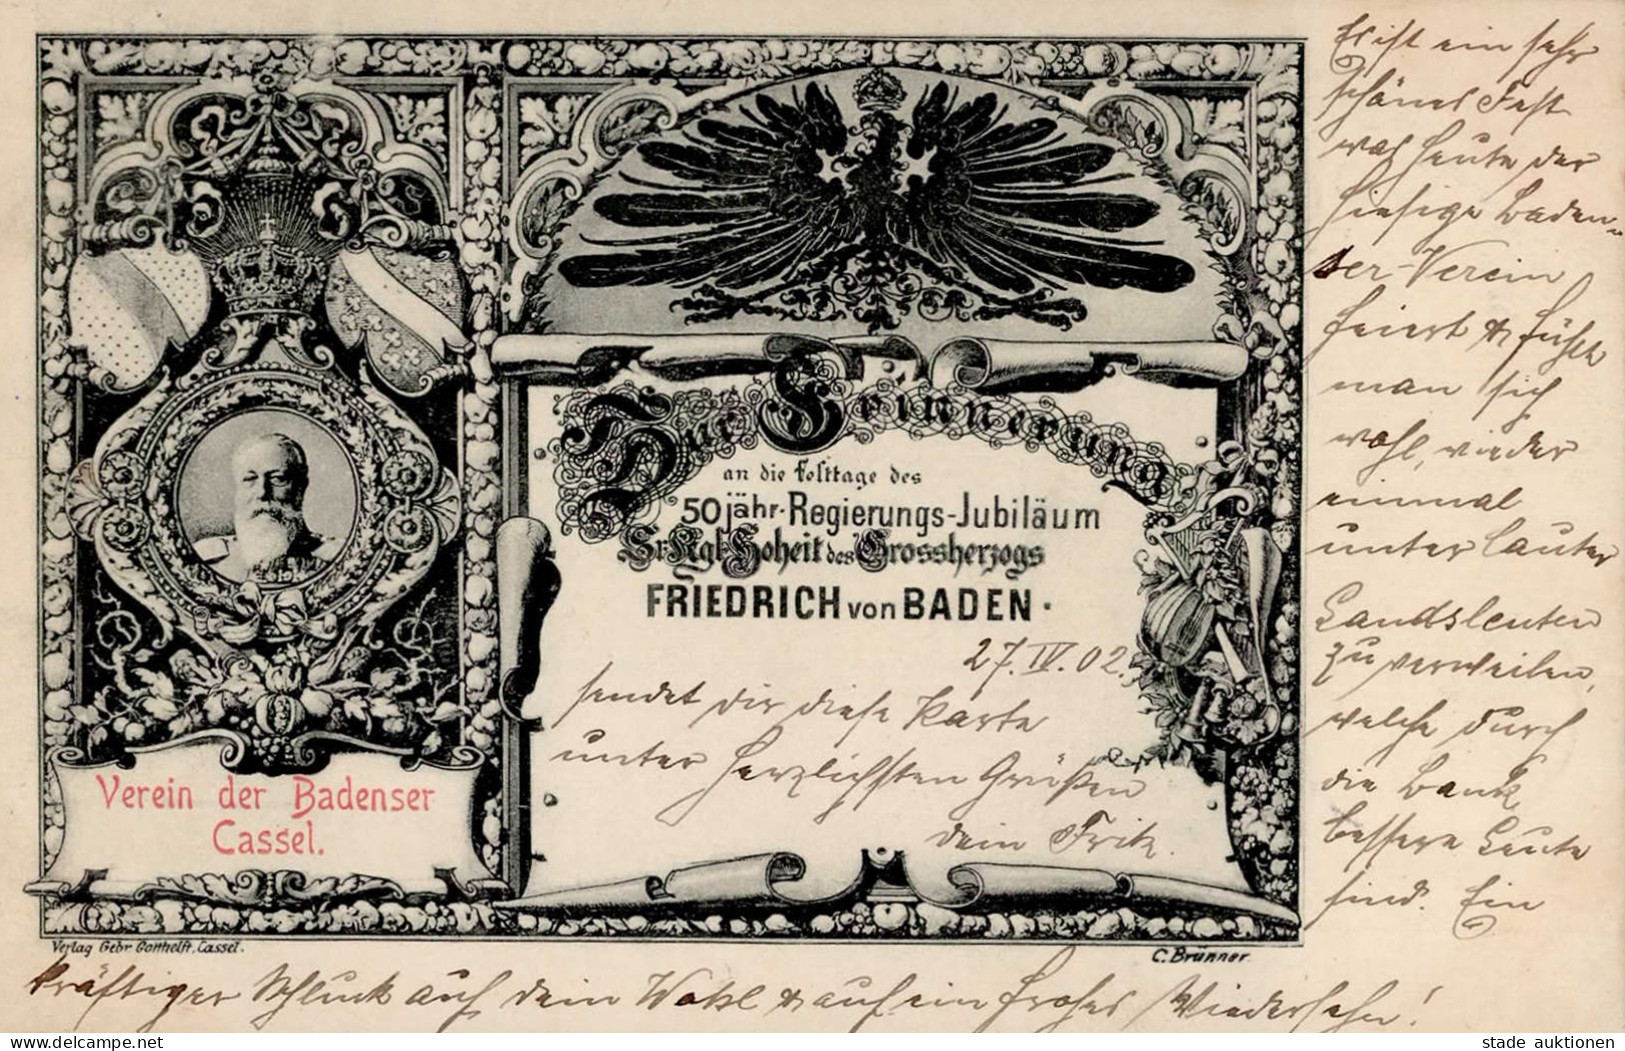 Zur Erinnerung
an die Festtage des
50jähr. Regierungs-Jubiläum
Sr. Kgl. Hoheit des Grossherzogs
FRIEDRICH von BADEN.
27. IV. 02.
sendet dir diese Karte
unter herzlichsten Grüßen
dein Fritz.
Verein der Badenser
Cassel.
Verlag Gebr. Gotthelft, Cassel.
C. Brünner
Es ist ein sehr
schönes Fest
was heute der
hiesige Baden-
ser-Verein
feiert & fühlt
man sich
wohl, wieder
einmal
unter lauter
Landsleuten
zu verweilen,
welche durch
die Bank
bessere Leute
sind. Ein
kräftiger Schluck auf dein Wohl & auf ein frohes Wiedersehn!
www.delcampe.net
stade auktionen